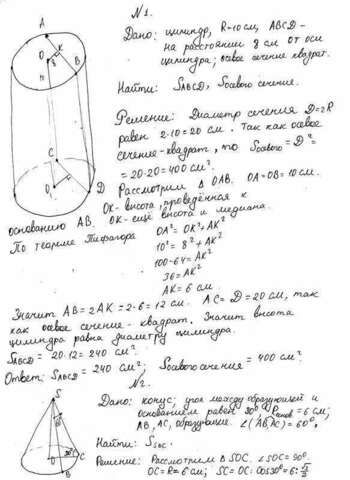 N1.
Дано: цилиндр, R=10 см, ABCD-
на расстоянии 8 см от оси
цилиндра; осевое сечение квадрат.
Найти: SABCD, Sосевого сечение.
Решение: Диаметр сечения D=2R
равен 2·10=20 см. Так как осевое
сечение-квадрат, то Sосевого=D²=
=20·20=400 см².
Рассмотрим △ OAB. OA=OB=10см.
OK-высота, проведённая к
основанию AB. OK-ещё высота и медиана.
По теореме Пифагора OA²=OK²+AK²
10²=8²+AK²
100-64=AK²
36=AK²
AK=6 см.
Значит AB=2AK=2·6=12 см. AC=D=20 см, так
как осевое сечение - квадрат. Значит высота
цилиндра равна диаметру цилиндра.
SABCD=20·12=240 см².
Ответ: SABCD=240 см²; Sосевого сечение=400 см²
N2.
Дано: конус; угол между образующей и
основанием равен 30°, Rоснов=6см;
AB, AC, образующие. ∠(AB;AC)=60°.
Найти: SSBC.
Решение: Рассмотрим △SOC. ∠SOC=90°.
OC=R=6см; SC=OC:cos30°=6:√3/2
A
O
K
8
H
B
C
O
D
S
O
30°
C
B